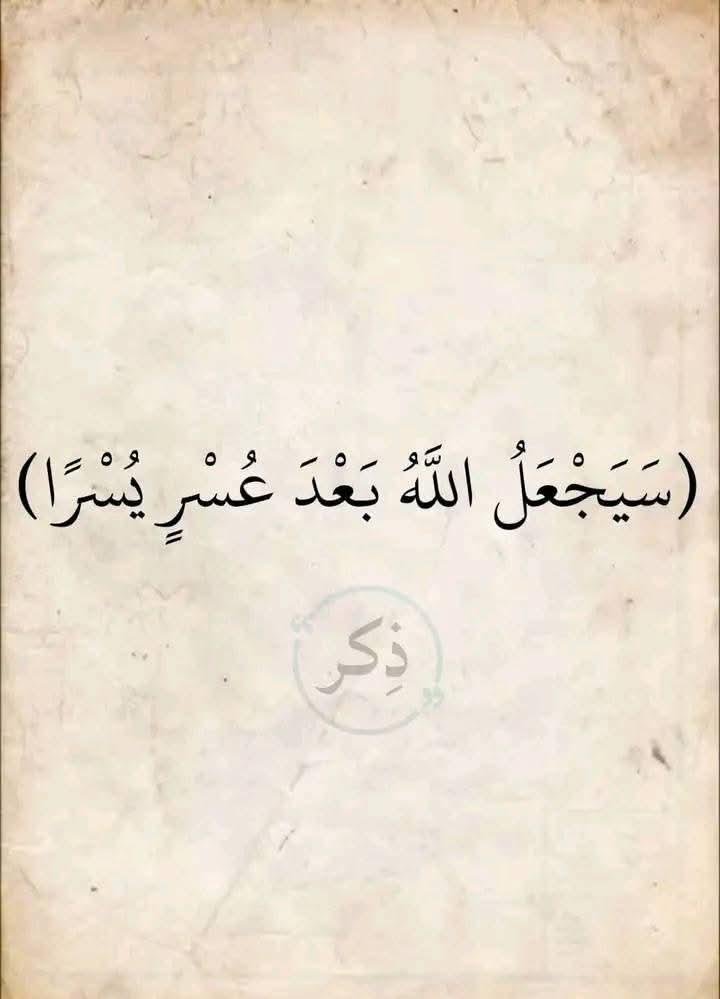 (سَيَجْعَلُ اللَّهُ بَعْدَ عُسْرٍ يُسْرًا)
ذِكر